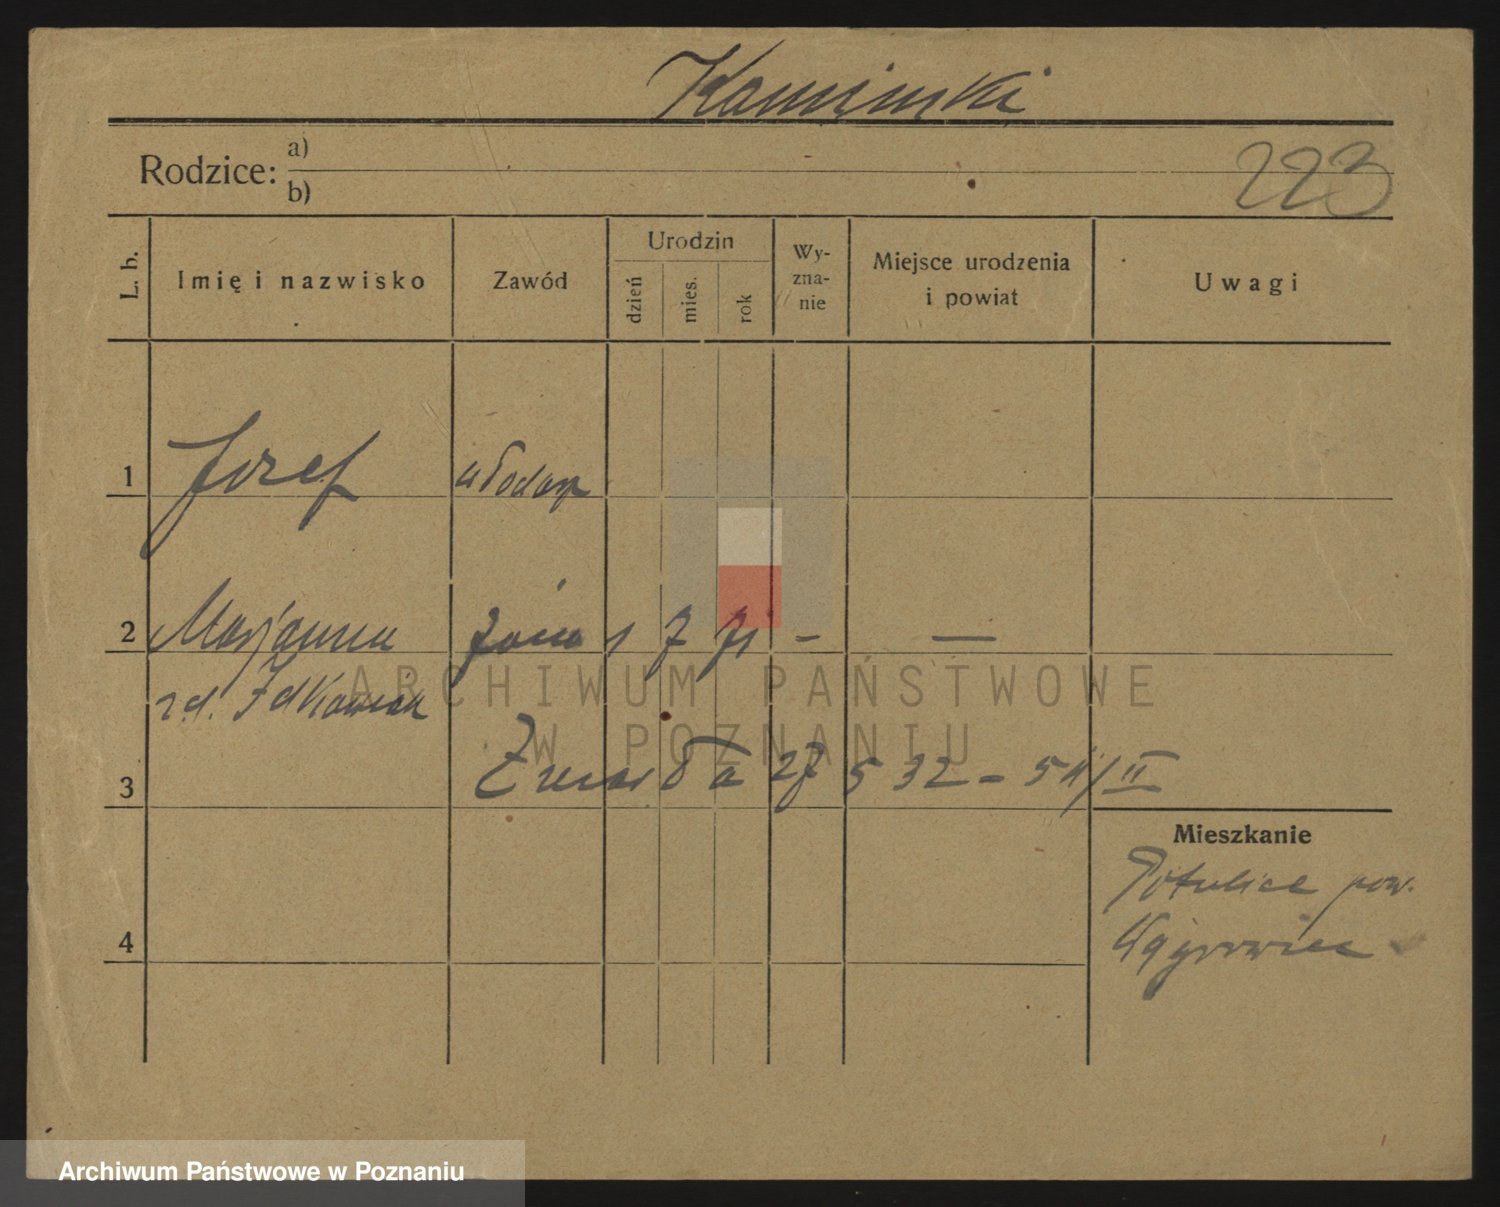 Kamiński
Rodzice: a)
b)
223
L. b.
Imię i nazwisko
Zawód
Urodzin
dzień
mies.
rok
Wy-
zna-
nie
Miejsce urodzenia
i powiat
Uwagi
1 Józef włodarz
2 Marjanna żona 1 7 71 - —
z d. Idkowiak
3
27 532 - 54/II
Mieszkanie
Potulice pow.
Wągrowiec
4
ARCHIWUM PAŃSTWOWE
W POZNANIU
Archiwum Państwowe w Poznaniu